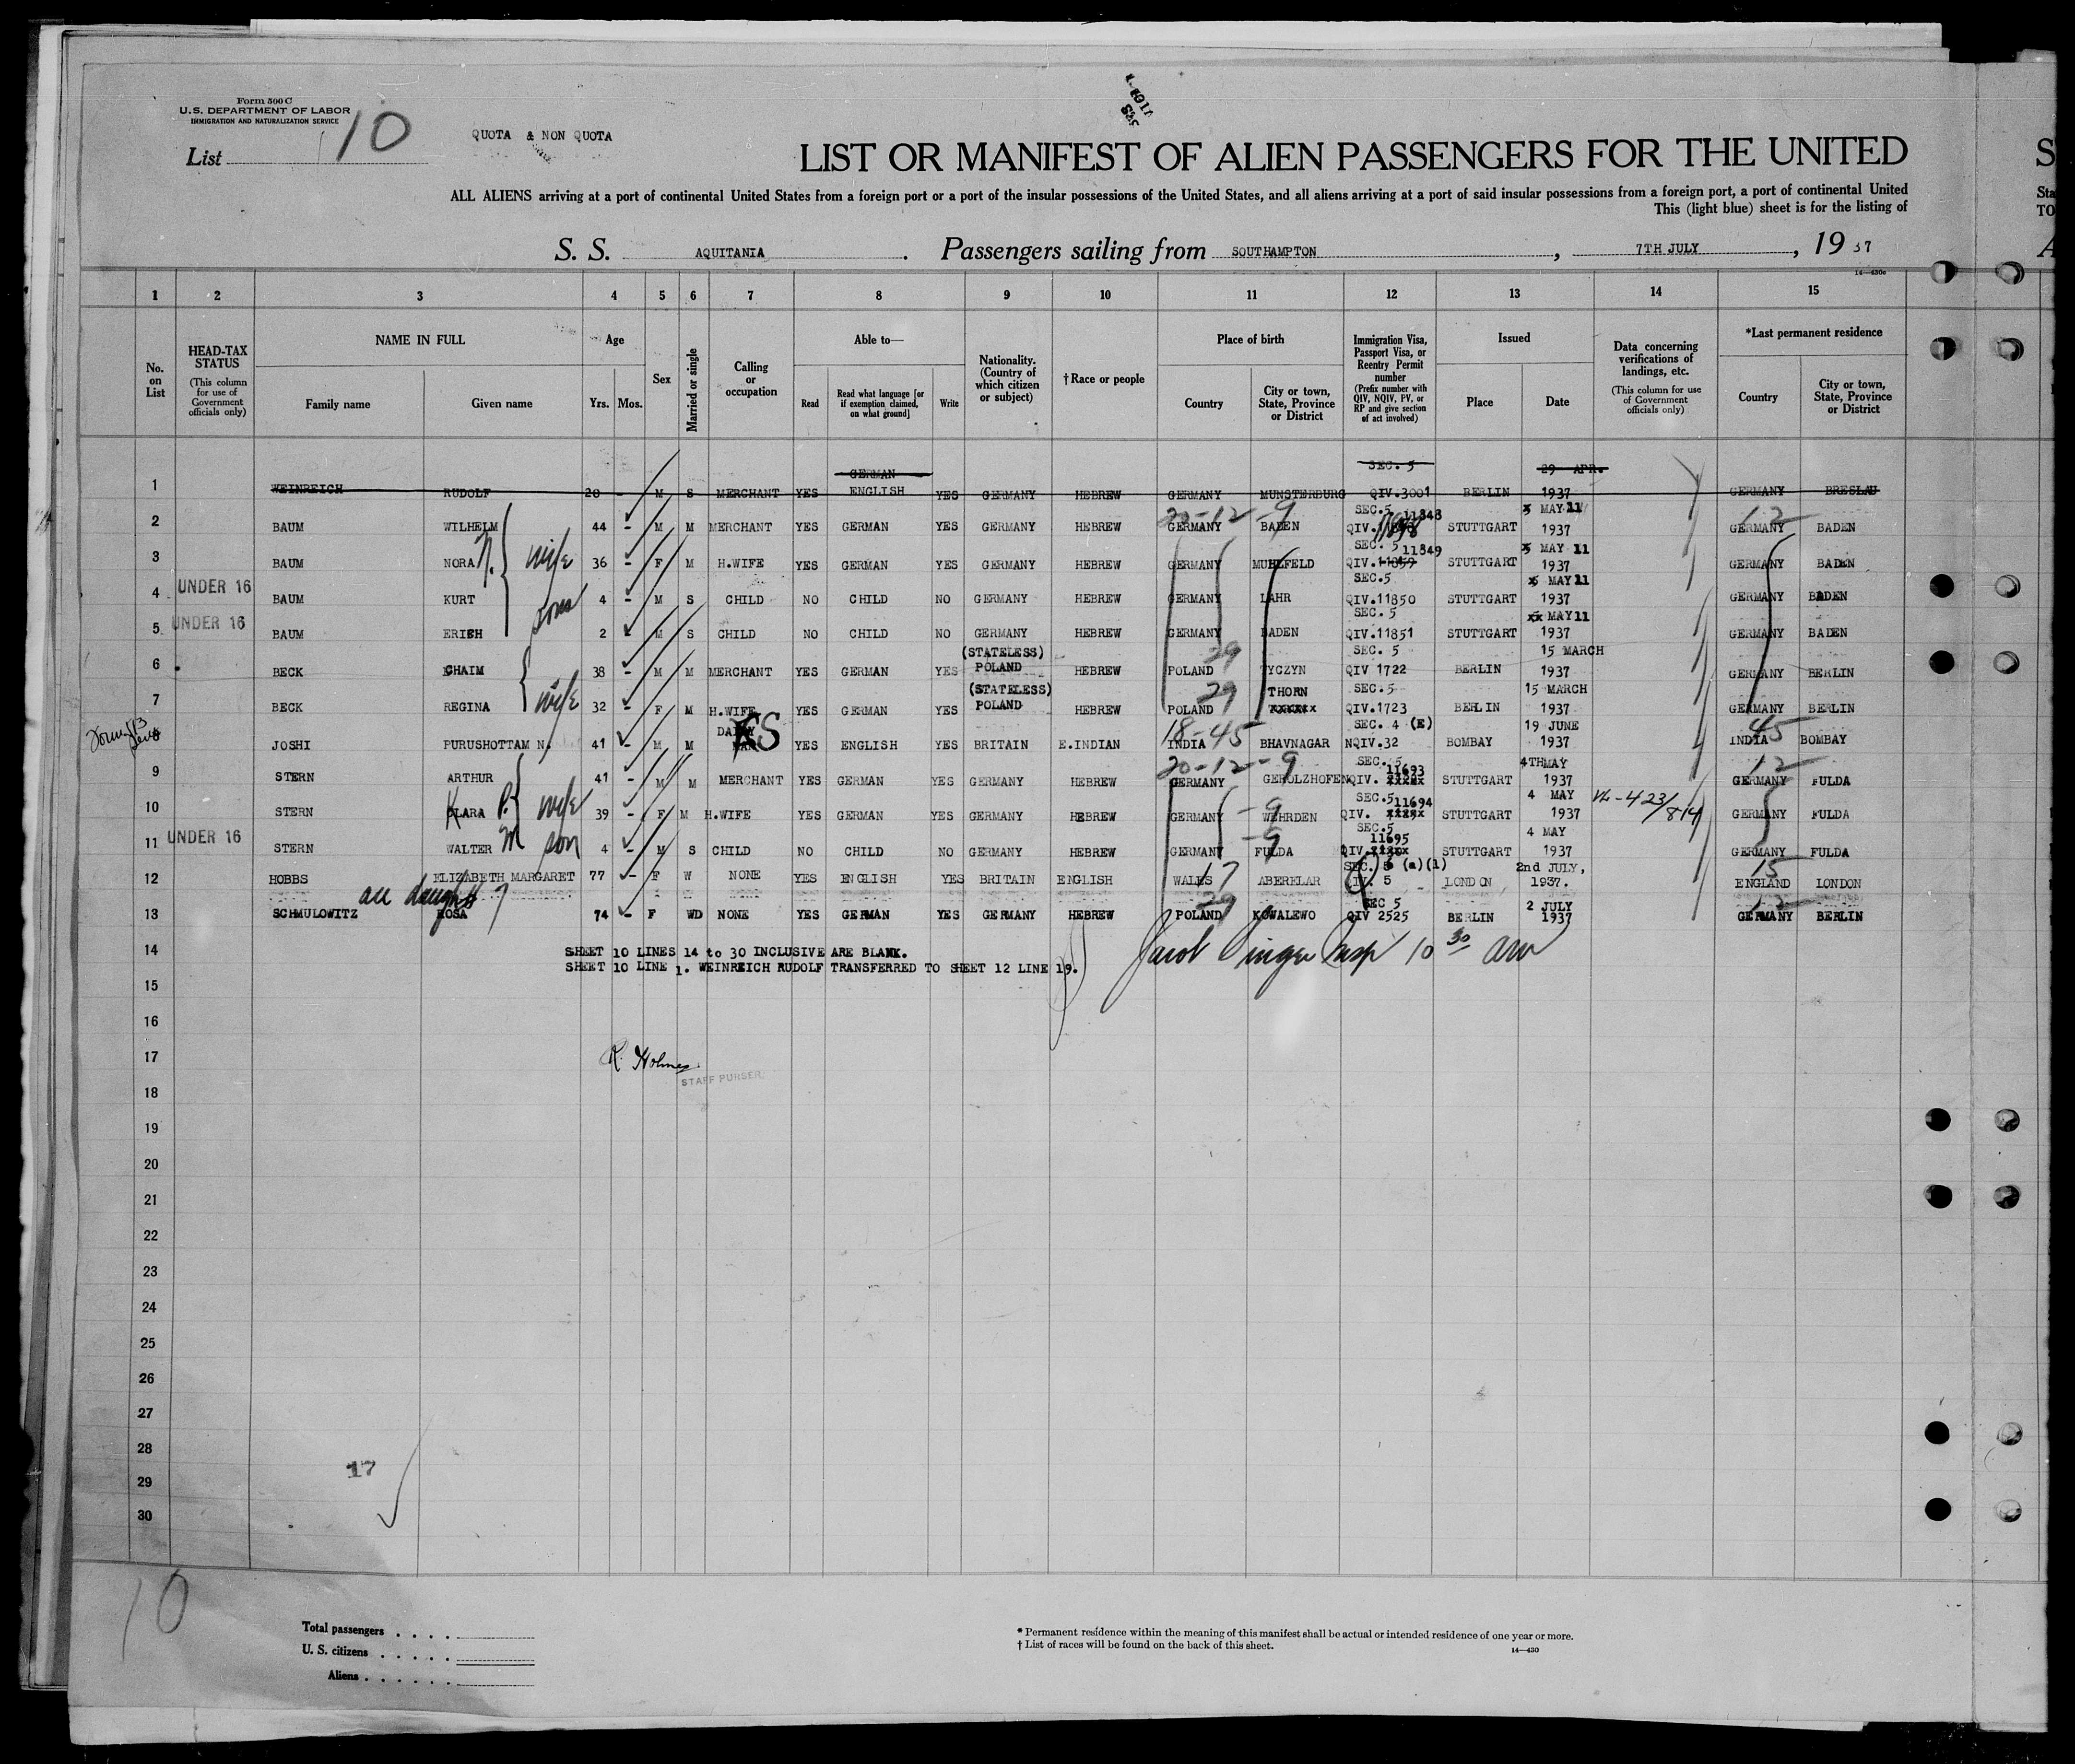 Form 500 C
U.S. DEPARTMENT OF LABOR
IMMIGRATION AND NATURALIZATION SERVICE
List 10
QUOTA & NON QUOTA
LIST OR MANIFEST OF ALIEN PASSENGERS FOR THE UNITED
ALL ALIENS arriving at a port of continental United States from a foreign port or a port of the insular possessions of the United States, and all aliens arriving at a port of said insular possessions from a foreign port, a port of continental United
This (light blue) sheet is for the listing of
S. S. AQUITANIA. Passengers sailing from SOUTHAMPTON, 7TH JULY, 1937
14—430c
1 2 3 4 5 6 7 8 9 10 11 12 13 14 15
No. on List
HEAD-TAX STATUS (This column for use of Government officials only)
NAME IN FULL Family name Given name
Age Yrs. Mos.
Sex
Married or single
Calling or occupation
Able to— Read Read what language [or if exemption claimed, on what ground] Write
Nationality. (Country of which citizen or subject)
†Race or people
Place of birth Country City or town, State, Province or District
Immigration Visa, Passport Visa, or Reentry Permit number (Prefix number with QIV, NQIV, PV, or RP and give section of act involved)
Issued Place Date
Data concerning verifications of landings, etc. (This column for use of Government officials only)
*Last permanent residence Country City or town, State, Province or District
GERMAN SEC. 5 29 APR.
1 WEINREICH RUDOLF 20 - M S MERCHANT YES ENGLISH YES GERMANY HEBREW GERMANY MUNSTERBURG QIV.3001 BERLIN 1937 GERMANY BRESLAU
20-12-9 SEC.5 11848 MAY 11 12
2 BAUM WILHELM 44 - M M MERCHANT YES GERMAN YES GERMANY HEBREW GERMANY BADEN QIV. STUTTGART 1937 GERMANY BADEN
SEC. 5 11849 MAY 11
3 BAUM NORA N. wife 36 - F M H.WIFE YES GERMAN YES GERMANY HEBREW GERMANY MUHLFELD QIV.11859 STUTTGART 1937 GERMANY BADEN
UNDER 16 SEC.5 MAY 11
4 BAUM KURT sons 4 - M S CHILD NO CHILD NO GERMANY HEBREW GERMANY LAHR QIV.11850 STUTTGART 1937 GERMANY BADEN
UNDER 16 SEC. 5 xx MAY 11
5 BAUM ERICH 2 - M S CHILD NO CHILD NO GERMANY HEBREW GERMANY BADEN QIV.11851 STUTTGART 1937 GERMANY BADEN
(STATELESS) 29 SEC. 5 15 MARCH
6 BECK CHAIM 38 - M M MERCHANT YES GERMAN YES POLAND HEBREW POLAND TYCZYN QIV 1722 BERLIN 1937 GERMANY BERLIN
(STATELESS) 29 THORN SEC.5 15 MARCH
7 BECK REGINA wife 32 - F M H.WIFE YES GERMAN YES POLAND HEBREW POLAND xxxxxx QIV.1723 BERLIN 1937 GERMANY BERLIN
18-45 SEC. 4 (E) 19 JUNE 45
8 JOSHI PURUSHOTTAM N. 41 - M M YES ENGLISH YES BRITAIN E.INDIAN INDIA BHAVNAGAR NQIV.32 BOMBAY 1937 INDIA BOMBAY
20-12-9 SEC. 5 11693 4TH MAY 12
9 STERN ARTHUR 41 - M M MERCHANT YES GERMAN YES GERMANY HEBREW GERMANY GEROLZHOFEN QIV. xxxxx STUTTGART 1937 GERMANY FULDA
-9 SEC.5 11694 4 MAY 423/814
10 STERN KLARA P. wife 39 - F M H.WIFE YES GERMAN YES GERMANY HEBREW GERMANY WEHRDEN QIV. xxxxx STUTTGART 1937 GERMANY FULDA
UNDER 16 -9 SEC.5 11695 4 MAY
11 STERN WALTER M son 4 - M S CHILD NO CHILD NO GERMANY HEBREW GERMANY FULDA QIV.xxxxx STUTTGART 1937 GERMANY FULDA
17 SEC. (a)(1) 2nd JULY, 15
12 HOBBS ELIZABETH MARGARET 77 - F W NONE YES ENGLISH YES BRITAIN ENGLISH WALES ABERELAR IV. 5 LONDON 1937. ENGLAND LONDON
29 SEC 5 2 JULY 12
13 SCHMULOWITZ ROSA 74 - F WD NONE YES GERMAN YES GERMANY HEBREW POLAND KOWALEWO QIV 2525 BERLIN 1937 GERMANY BERLIN
14 SHEET 10 LINES 14 to 30 INCLUSIVE ARE BLANK.
SHEET 10 LINE 1. WEINREICH RUDOLF TRANSFERRED TO SHEET 12 LINE 19.
Jacob Singer Insp 10 30 am
15
16
17 R. Holmes
STAFF PURSER.
18
19
20
21
22
23
24
25
26
27
28
17
29
30
10
Total passengers
U. S. citizens
Aliens
* Permanent residence within the meaning of this manifest shall be actual or intended residence of one year or more.
† List of races will be found on the back of this sheet.
14—430